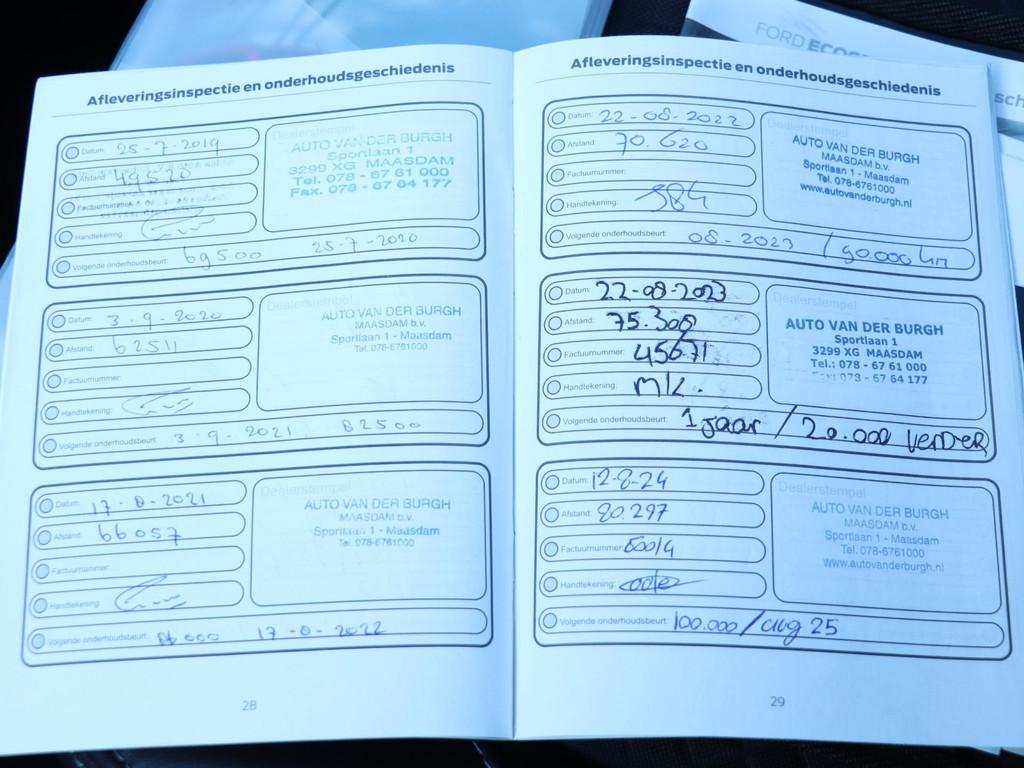 FORD ECO
sch
Afleveringsinspectie en onderhoudsgeschiedenis
Datum: 25-7-2019
Afstand: 49520
Factuurnummer:
Handtekening:
Volgende onderhoudsbeurt: 69500 25-7-2020
Dealerstempel
AUTO VAN DER BURGH
Sportlaan 1
3299 XG MAASDAM
Tel. 078 - 67 61 000
Fax. 078 - 67 64 177
Datum: 3-9-2020
Afstand: 62511
Factuurnummer:
Handtekening:
Volgende onderhoudsbeurt: 3-9-2021 82500
Dealerstempel
AUTO VAN DER BURGH
MAASDAM b.v.
Sportlaan 1 - Maasdam
Tel. 078-6761000
Datum: 17-8-2021
Afstand: 66057
Factuurnummer:
Handtekening:
Volgende onderhoudsbeurt: 000 17-8-2022
Dealerstempel
AUTO VAN DER BURGH
MAASDAM b.v.
Sportlaan 1 - Maasdam
Tel. 078-6761000
28
Afleveringsinspectie en onderhoudsgeschiedenis
Datum: 22-08-2022
Afstand: 70.620
Factuurnummer:
Handtekening:
Volgende onderhoudsbeurt: 08-2023 / 90.000 km
Dealerstempel
AUTO VAN DER BURGH
MAASDAM b.v.
Sportlaan 1 - Maasdam
Tel. 078-6761000
www.autovanderburgh.nl
Datum: 22-08-2023
Afstand: 75.308
Factuurnummer: 45671
Handtekening: MK.
Volgende onderhoudsbeurt: 1 jaar / 20.000 verder
Dealerstempel
AUTO VAN DER BURGH
Sportlaan 1
3299 XG MAASDAM
Tel.: 078 - 67 61 000
Fax: 078 - 67 64 177
Datum: 12-8-24
Afstand: 80.297
Factuurnummer: 50014
Handtekening:
Volgende onderhoudsbeurt: 100.000 / aug 25
Dealerstempel
AUTO VAN DER BURGH
MAASDAM b.v.
Sportlaan 1 - Maasdam
Tel. 078-6761000
www.autovanderburgh.nl
29